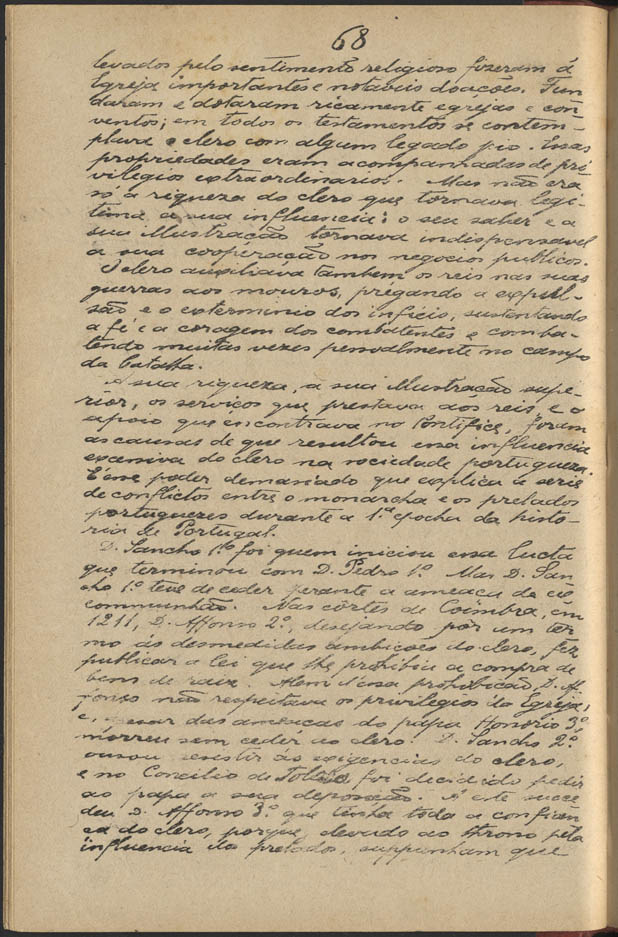 68
levados pelo sentimento religioso fizeram á
Egreja importantes e notaveis doações. Fun
daram e dotaram ricamente egrejas e con
ventos; em todos os testamentos se contem-
plava o clero com algum legado pio. Essas
propriedades eram acompanhadas de pri
vilegios extraordinarios. Mas não era
só a riqueza do clero que tornava legi-
tima a sua influencia; o seu saber e a
sua illustração tornava indispensavel
a sua cooperação nos negocios publicos.
O clero auxiliáva tambem os reis nas suas
guerras aos mouros, prégando a expul-
são e o exterminio dos infieis, sustentando
a fé e a coragem dos combatentes e comba-
tendo muitas vezes pessoalmente no campo
da batalha.
A sua riqueza, a sua illustração supe-
riôr, os serviços que prestava aos reis e o
apoio que encontrava no Pontifice, foram
as causas de que resultou essa influencia
excessiva do clero na sociedade portugueza.
É esse poder demasiado que explica a serie
de conflictos entre o monarcha e os prelados
portuguezes durante a 1.ª epocha da histo-
ria de Portugal.
D. Sancho 1.º foi quem iniciou essa lucta
que terminou com D. Pedro 1.º Mas D. San
cho 1.º teve de ceder perante a ameaça de ex
communhão. Nas côrtes de Coimbra, em
1211, D. Affonso 2.º, desejando pôr um ter
mo ás desmedidas ambições do clero, fez
publicar a lei que lhe prohibiu a compra de
bens de raiz. Alem d'essa prohibição, D. Af
fonso não respeitava os privilegios da Egreja,
e, apesar das ameaças do papa Honorio 3.º,
morreu sem cedêr ao clero. D. Sancho 2.º
ousou resistir ás exigencias do clero,
e no Concilio de foi decidido pedir
ao papa a sua deposição. A este succe
deu D. Affonso 3.º que tinha toda a confian
ça do clero, porque, elevado ao throno pela
influencia dos prelados, suppunham que